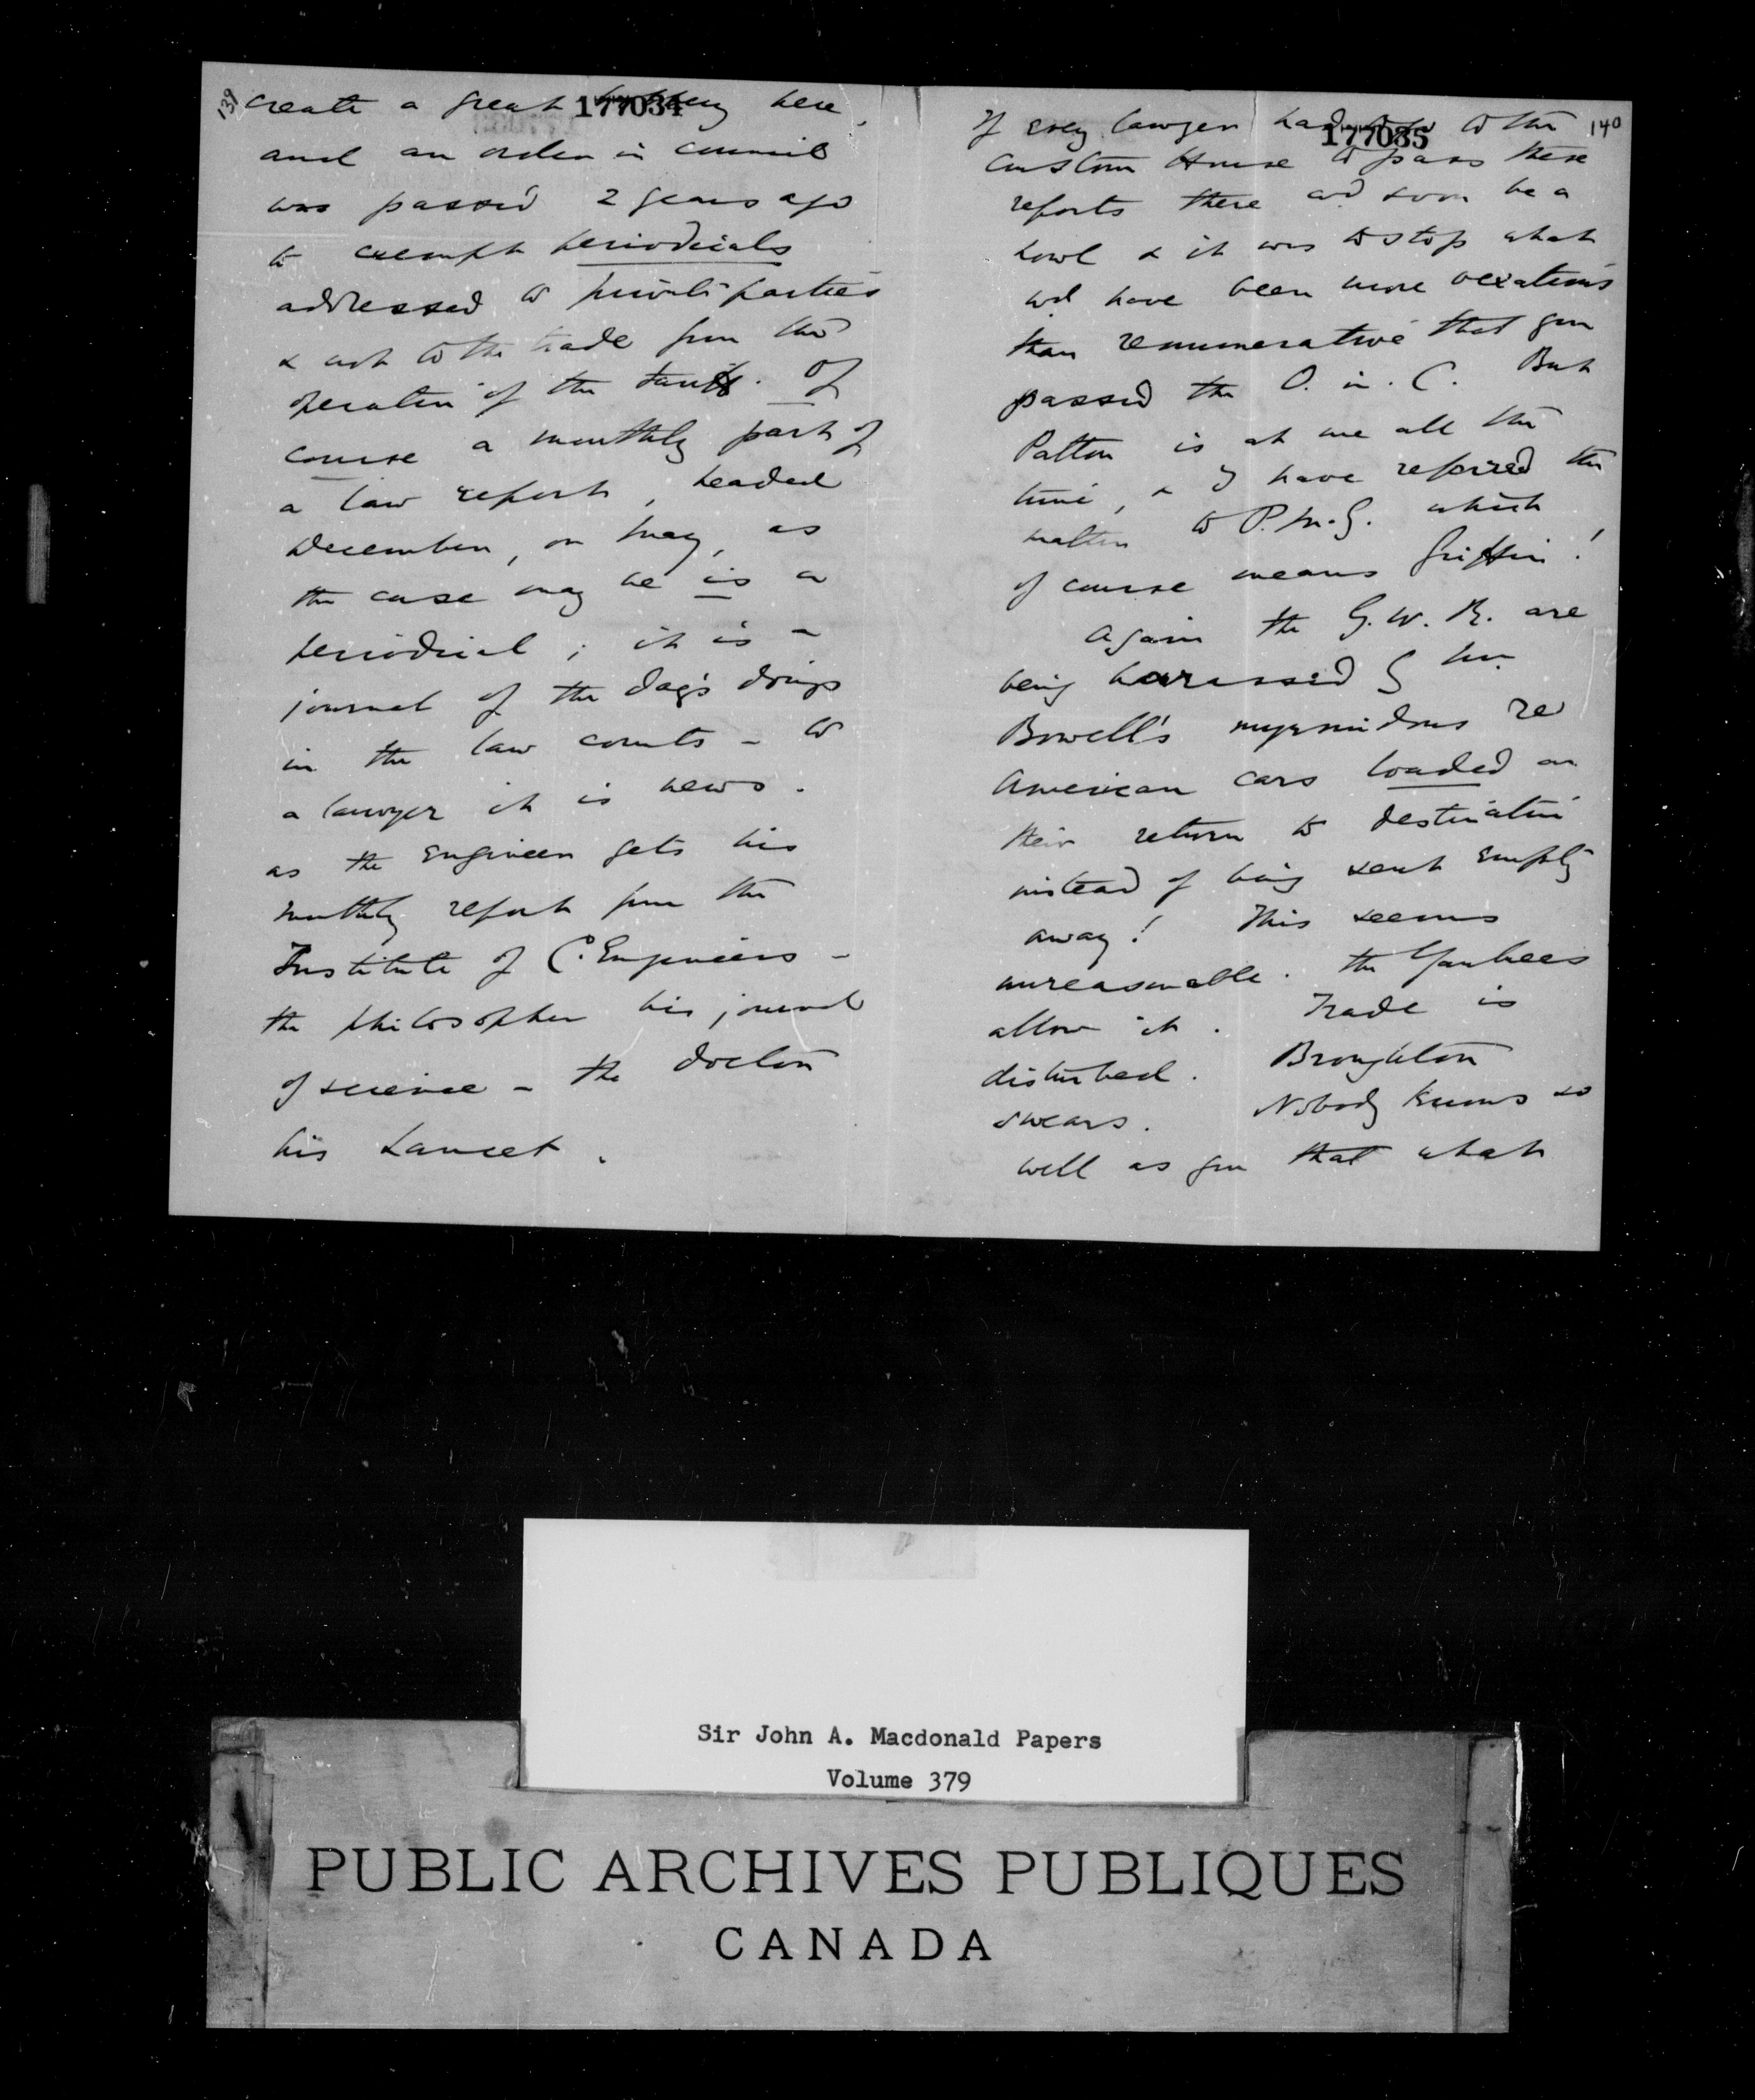 139
177034
create a great here,
and an order in council
was passed 2 years ago
to exempt periodicals
addressed to private parties
& not to the trade from the
operation of the tariff. Of
course a monthly part of
a law report, headed
December, or May, as
the case may be is a
periodical; it is a
journal of the day's doings
in the law courts - to
a lawyer it is news.
as the Engineer gets his
monthly report from the
Institute of C. Engineers -
the philosopher his journal
of science - the doctor
his Lancet.
140
177035
If every lawyer had to the
Custom House to pass these
reports there wd soon be a
howl & it was to stop what
wd have been more vexatious
than remunerative that you
passed the O. in. C. But
Patton is at me all the
time, & I have referred the
matter to P.M.G. which
of course means Griffin!
Again the G.W.R. are
being harassed by
Bowell's myrmidons re
American cars loaded on
their return to destination
instead of being sent empty
away! This seems
unreasonable. the Yankees
allow it. Trade is
disturbed. Broughton
swears. Nobody knows so
well as you that what
Sir John A. Macdonald Papers
Volume 379
PUBLIC ARCHIVES PUBLIQUES
CANADA